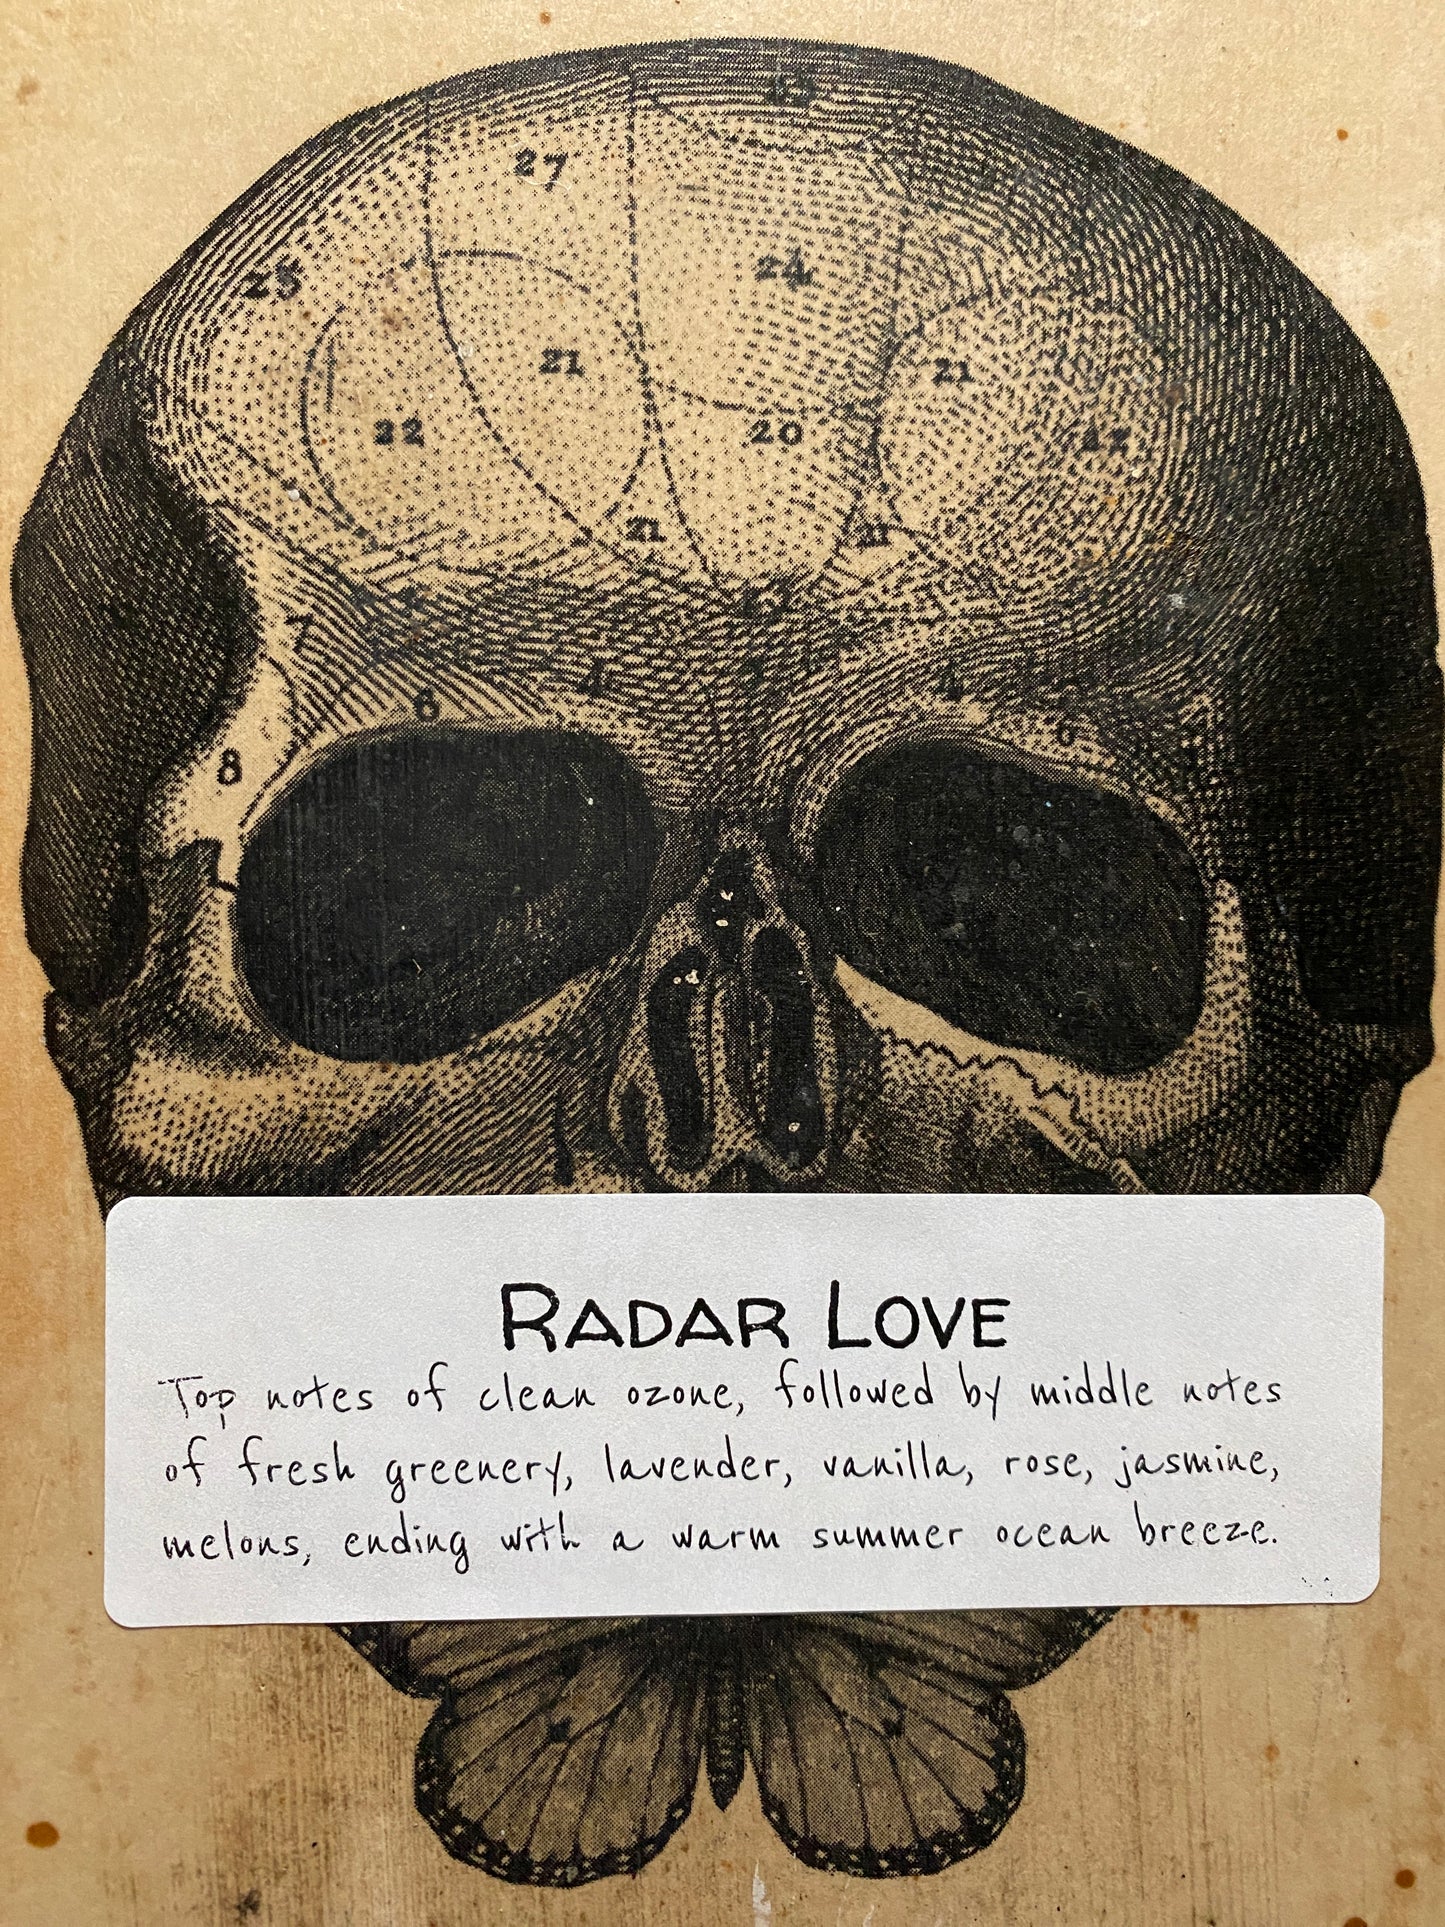 27
25
24
21
21
22
20
21
21
6
6
8
RADAR LOVE
Top notes of clean ozone, followed by middle notes
of fresh greenery, lavender, vanilla, rose, jasmine,
melons, ending with a warm summer ocean breeze.